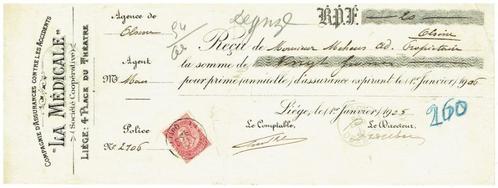 COMPAGNIE D'ASSURANCES CONTRE LES ACCIDENTS
"LA MÉDICALE"
(Société Coopérative)
LIÉGE: 4 PLACE DU THÉATRE
Agence de
B.P.F. 20
Reçu de Monsieur Ad. Propriétaire
Agent
la somme de Vingt francs
Mr
pour prime (annuelle) d'assurance expirant le 1r Janvier 1906
Liége, le 1r Janvier 1905
260
Police
Le Comptable,
Le Directeur,
No 2706